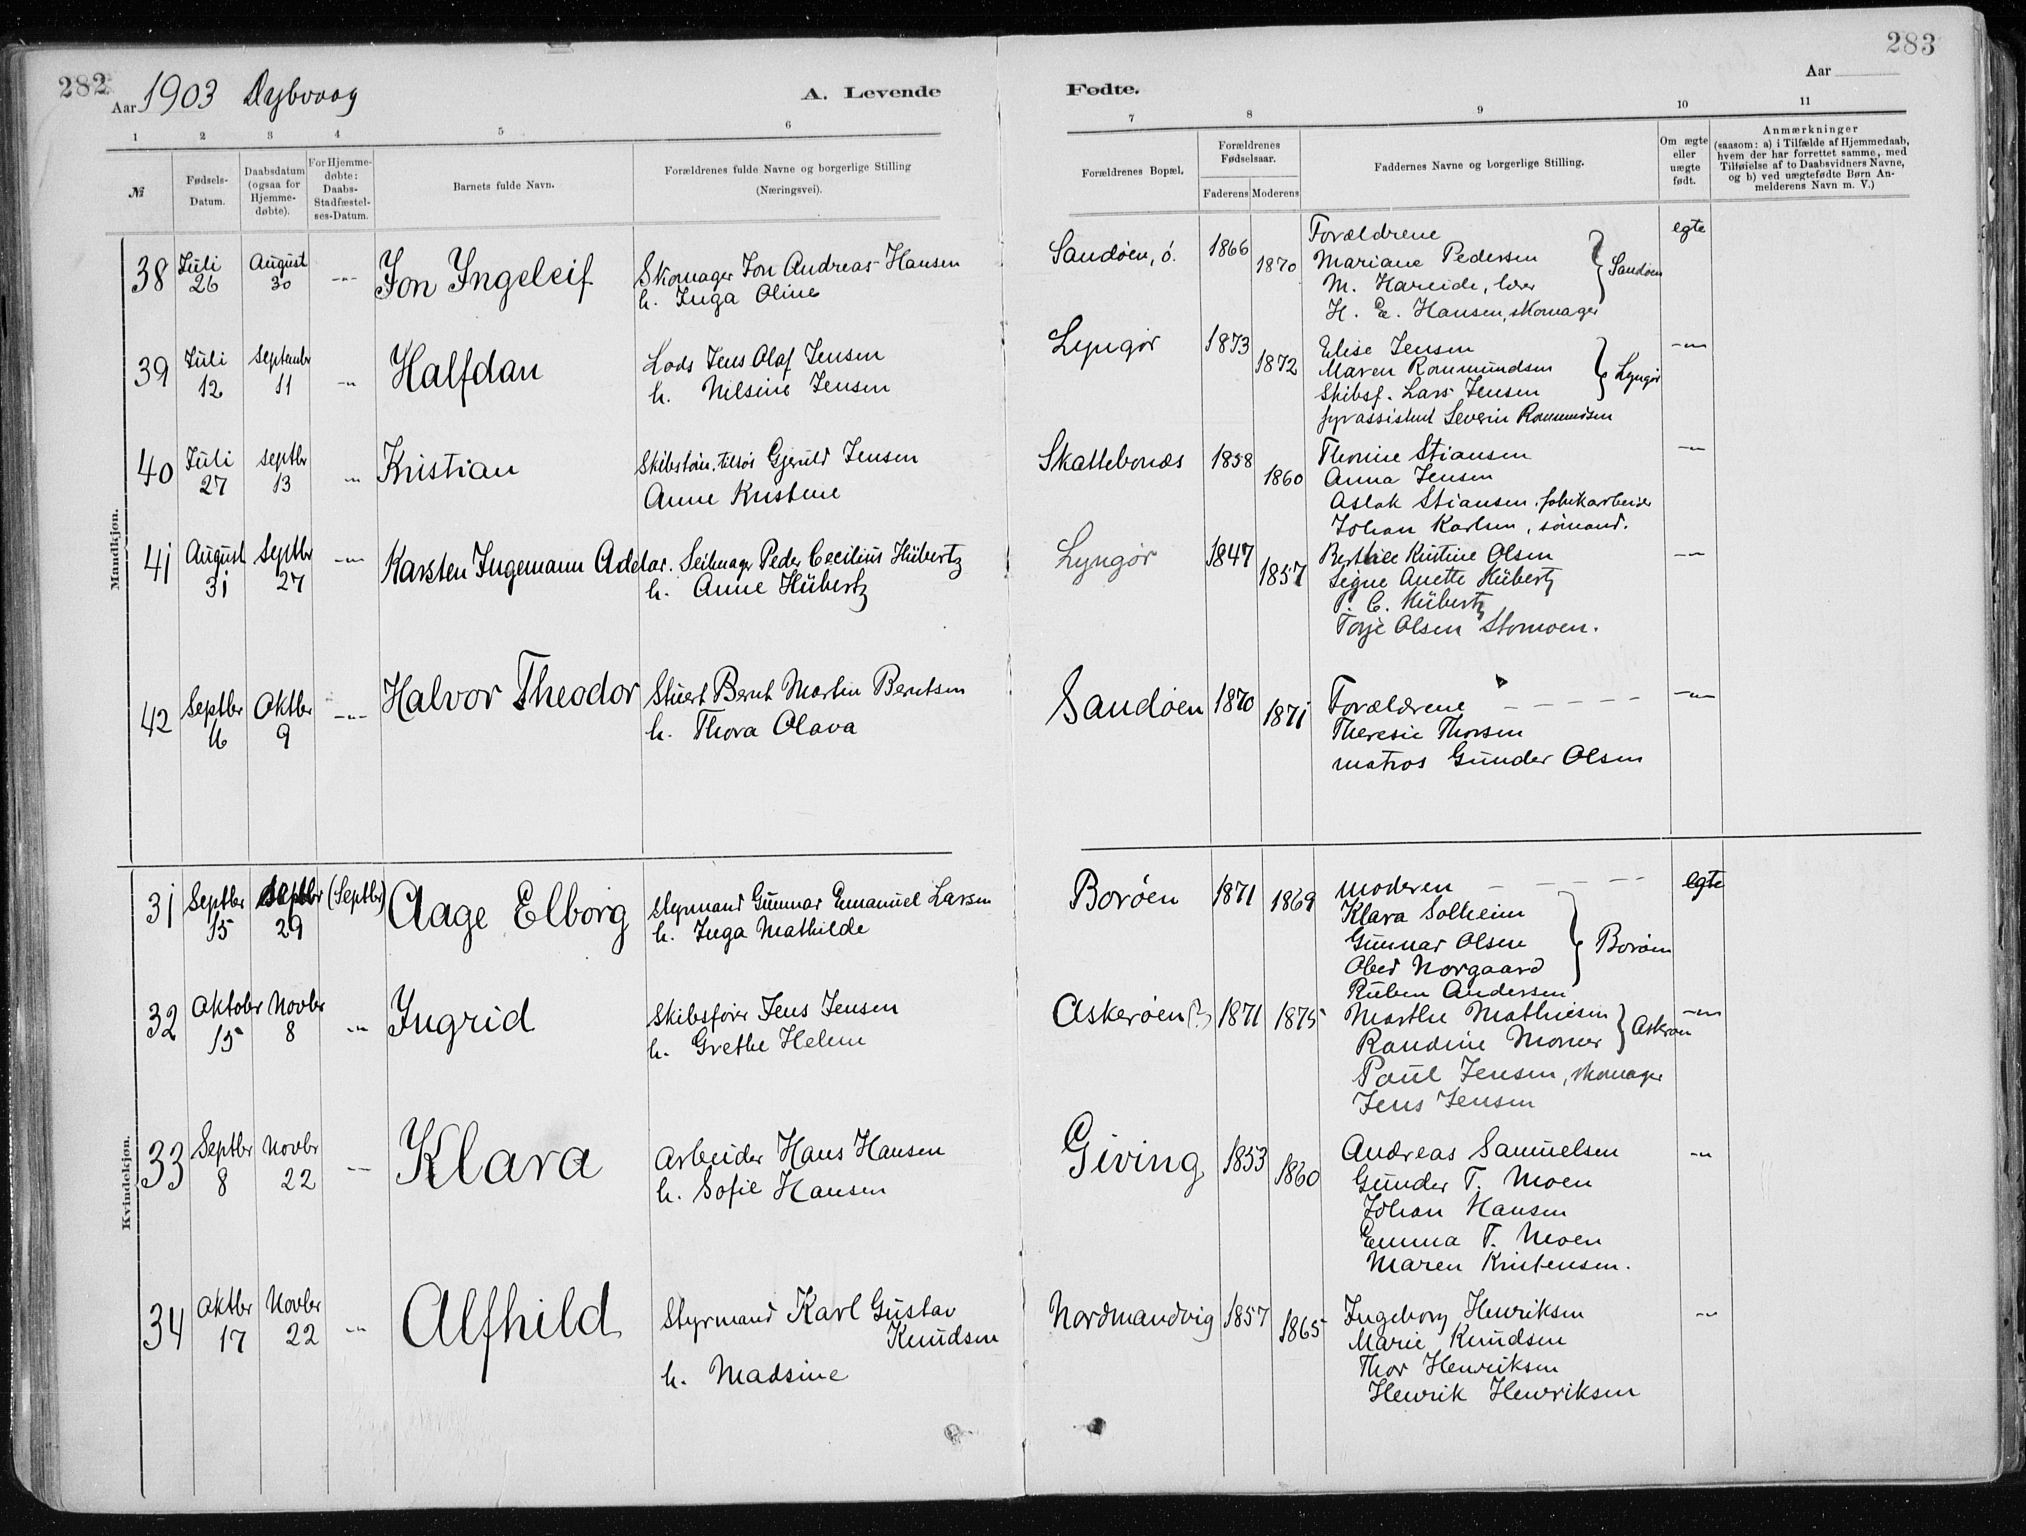 282
283
Aar 1903 Dybvaag
A. Levende Fødte.
Aar
1 2 3 4 5 6 7 8 9 10 11
№
Fødsels-
Datum.
Daabsdatum
(ogsaa for
Hjemme-
døbte).
For Hjemme-
døbte:
Daabs-
Stadfæstel-
ses-Datum.
Barnets fulde Navn.
Forældrenes fulde Navne og borgerlige Stilling
(Næringsvei).
Forældrenes Bopæl.
Forældrenes
Fødselsaar.
Faderens Moderens
Faddernes Navne og borgerlige Stilling.
Om ægte
eller
uægte
født.
Anmærkninger
(saasom: a) i Tilfælde af Hjemmedaab,
hvem der har forrettet samme, med
Tilføielse af to Daabsvidners Navne,
og b) ved uægtefødte Børn An-
melderens Navn m. V.)
Mandkjøn.
38 Juli 26 August 30 -"- Jon Ingeleif
Skomager Jon Andreas Hansen
h. Inga Oline
Sandøen, ø. 1866 1870
Forældrene
Mariane Pedersen
M. Hareide, lærer
H. E. Hansen, skomager
Sandøen
egte
39 Juli 12 September 11 -"- Halfdan
Lods Jens Olaf Jensen
h. Nilsine Jensen
Lyngør 1873 1872
Elise Jensen
Maren Rommundsen
Skibsf. Lars Jensen
fyrassistent Severin Rommundsen
Lyngør
-"-
40 Juli 27 Septbr 13 -"- Kristian
Skibstøm. Gjeruld Jensen
Anne Kristine
Skattebonæs 1858 1860
Thomine Stiansen
Anna Jensen
Aslak Stiansen, fabrikarbeider
Johan Karlsen, sømand.
-"-
41 August 31 Septbr 27 -"- Karsten Ingemann Addar.
Seilmager Peder Cecilius Hübertz
h. Anne Hübertz
Lyngør 1847 1857
Berthe Kristine Olsen
Signe Anette Hübertz
P. C. Hübertz
Torje Olsen Stomoen.
-"-
42 Septbr 16 Oktbr 9 -"- Halvor Theodor
Stuert Bernt Martin Berntsen
h. Thora Olava
Sandøen 1870 1871
Forældrene - - - - -
Theresie Thorsen
matros Gunder Olsen
-"-
Kvindekjøn.
31 Septbr 15 Septbr 29 (Septbr) Aage Elborg
Styrmand Gunnar Emanuel Larsen
h. Inga Mathilde
Borøen 1871 1869
Moderen - - - - -
Klara Solheim
Gunnar Olsen
Obed Norgaard
Ruben Andersen
Borøen
egte
32 Oktober 15 Novbr 8 -"- Ingrid
Skibsfører Jens Jensen
h. Grethe Helene
Askerøen 1871 1875
Marthe Mathiesen
Randine Momer
Paul Jensen, skomager
Jens Jensen
Askerøen
-"-
33 Septbr 8 Novbr 22 -"- Klara
Arbeider Hans Hansen
h. Sofie Hansen
Giving 1853 1860
Andreas Samuelsen
Gunder T. Moen
Johan Hansen
Emma T. Moen
Maren Kristensen.
-"-
34 Oktbr 17 Novbr 22 -"- Alfhild
Styrmand Karl Gustav
Knudsen
h. Madsine
Nordmandvig 1857 1865
Ingeborg Henriksen
Marie Knudsen
Thor Henriksen
Henrik Henriksen
-"-